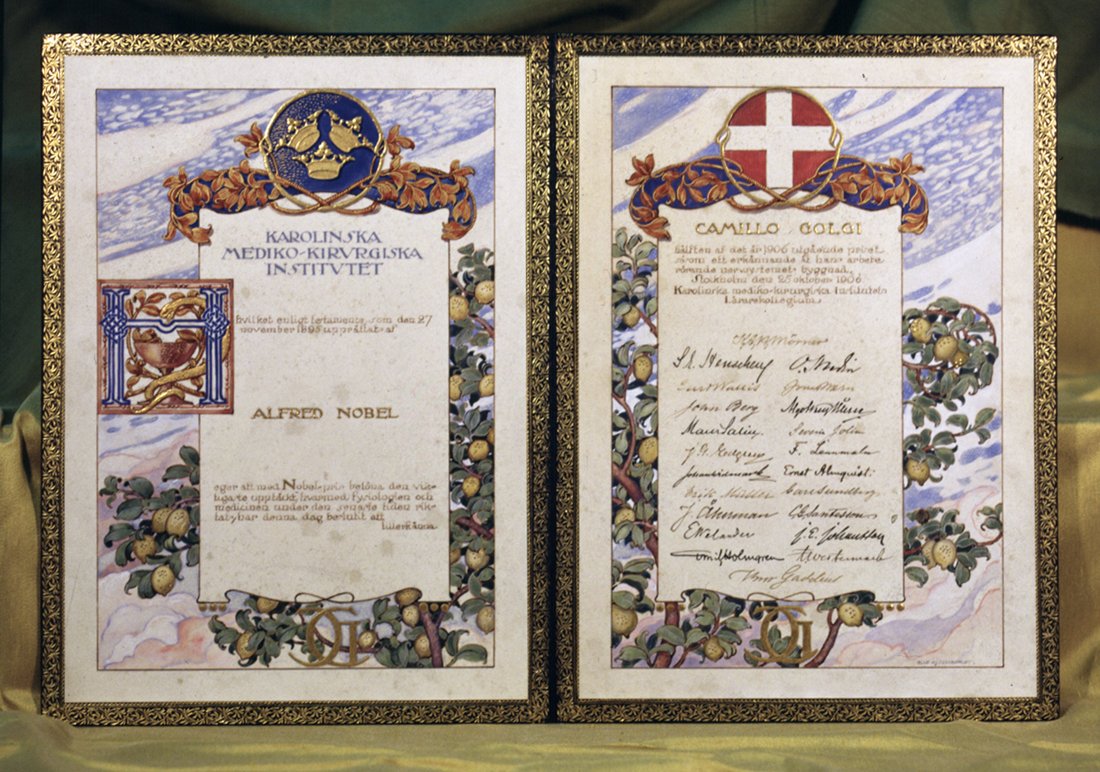 KAROLINSKA
MEDIKO-KIRVRGISKA
INSTITVTET
H
hvilket enligt testamente, som den 27
november 1895 upprättats af
ALFRED NOBEL
eger att med Nobel-pris belöna den vik-
tigaste upptäkt, hvarmed fysiologien och
medicinen under den senare tiden rik-
tats, har denna dag beslutit att
tillerkänna
CAMILLO GOLGI
hälften af det år 1906 utgående priset
såsom ett erkännande åt hans arbete
rörande nervsystemets byggnad.
Stockholm den 25 oktober 1906.
Karolinska mediko-kirurgiska Institutets
Lärarekollegium
Mörner
S. E. Henschen
Curt Wallis
John Berg
Maur Salin
Severin Jolin
J. G. Edgren F. Lennmalm
Ernst Almquist
Erik Müller Carl Sundberg
J. Åkerman C. G. Santesson
E. Welander J. E. Johansson
Emil Holmgren A. Westermark
Gadelius